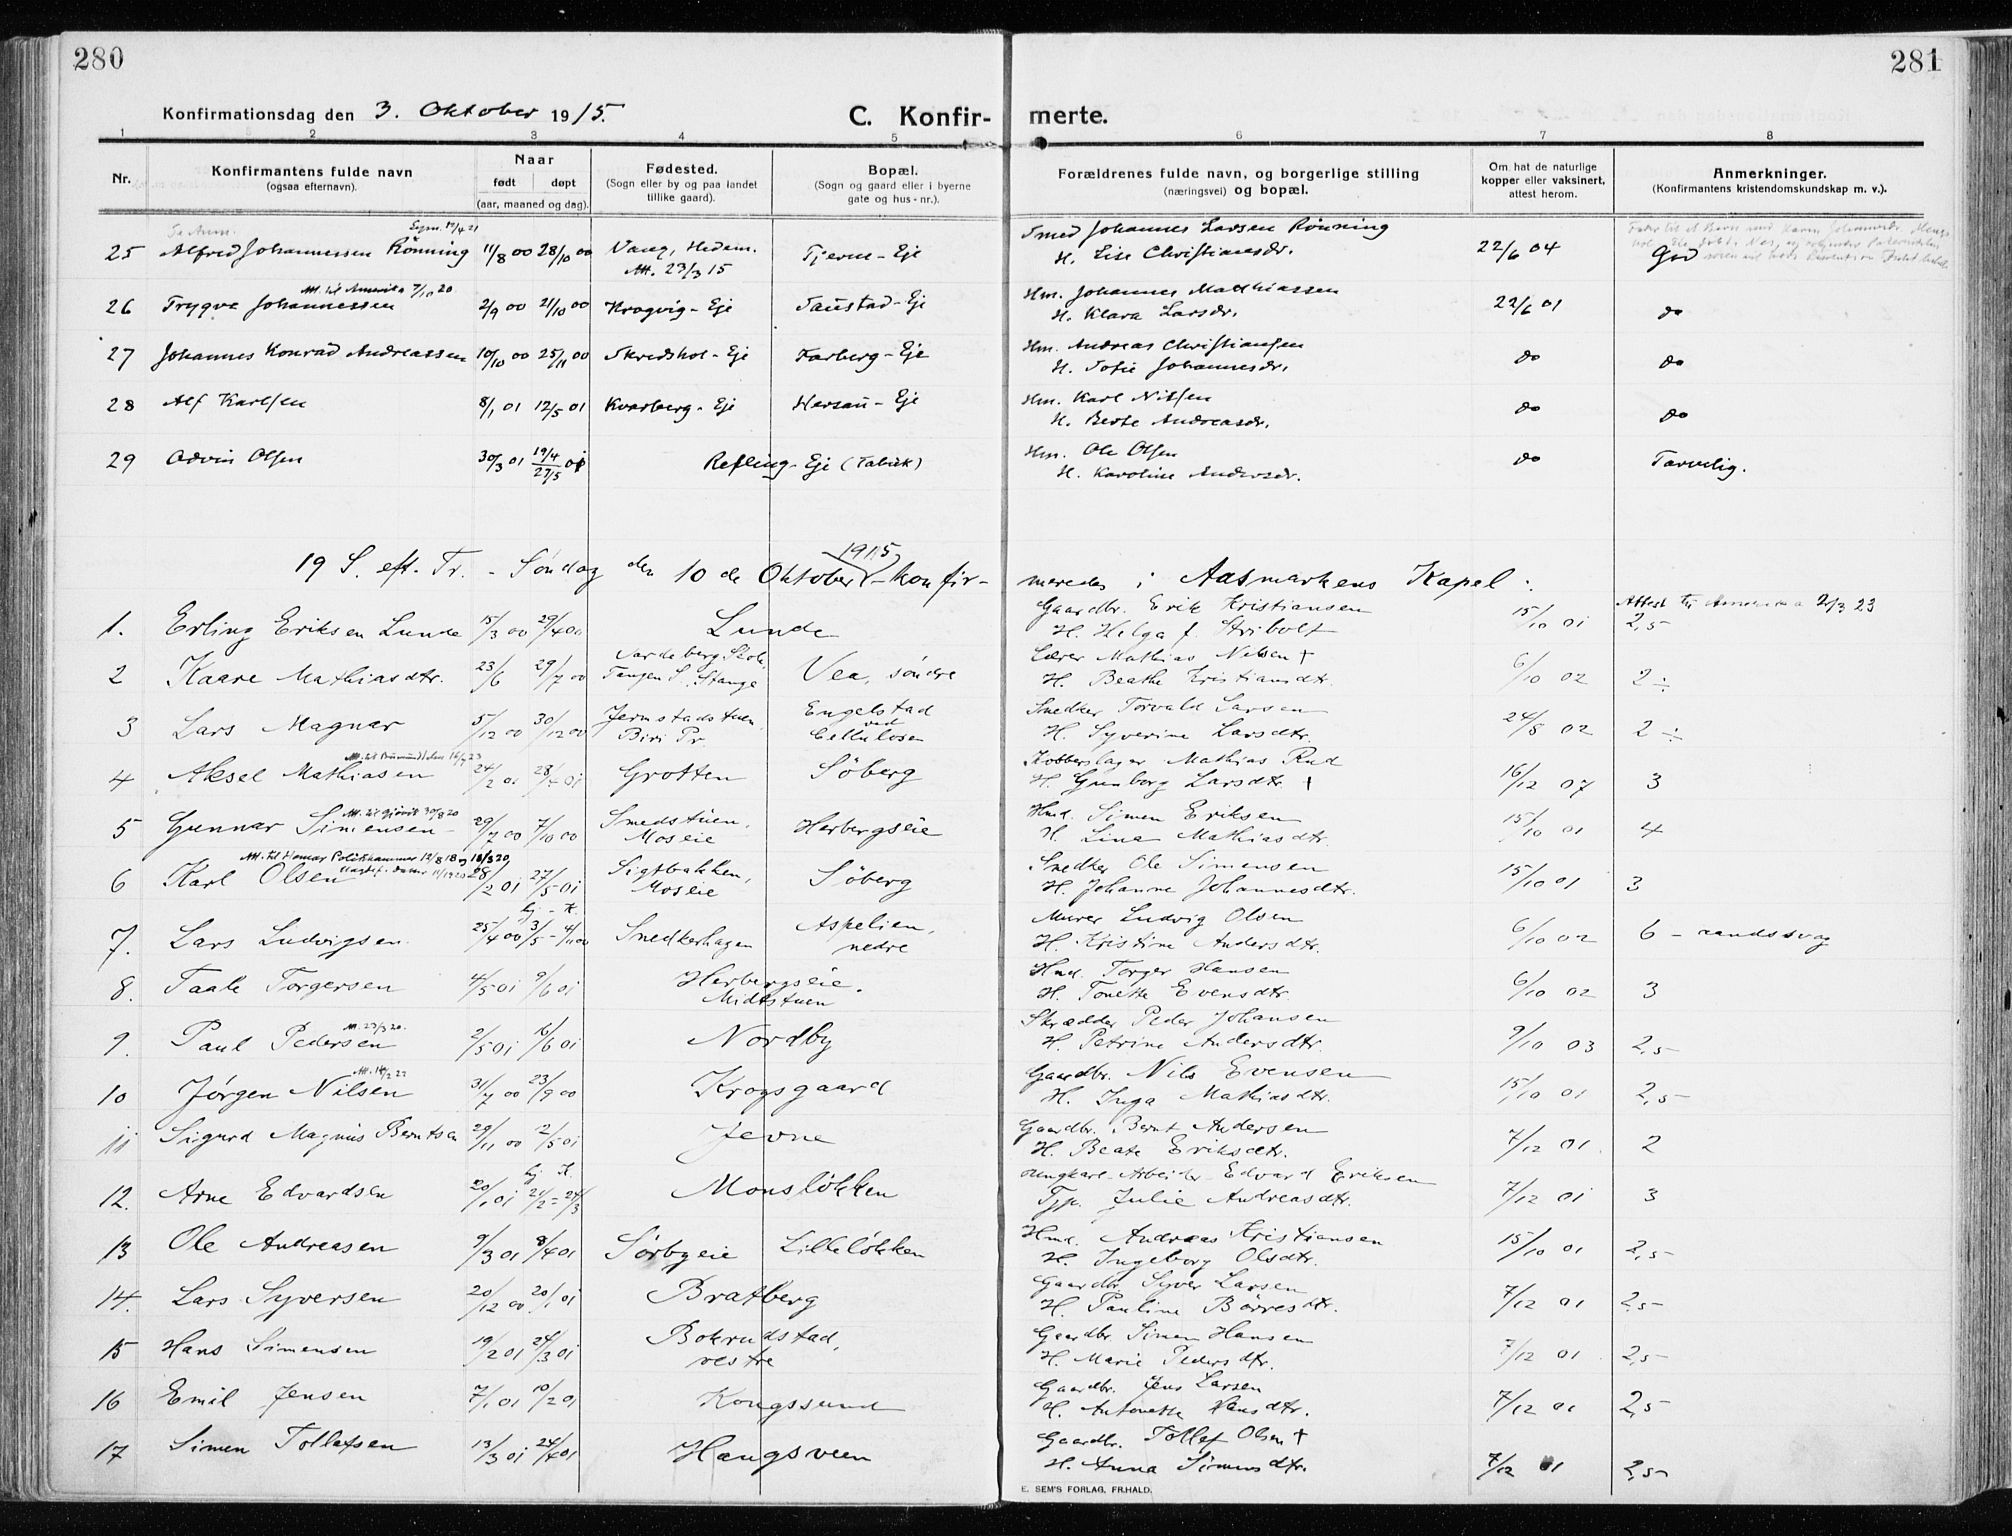 280
281
Konfirmationsdag den 3. Oktober 1915.
C. Konfir-
merte.
1 2 3 4 5 6 7 8
Nr.
Konfirmantens fulde navn
(ogsaa efternavn).
Naar
født døpt
(aar, maaned og dag).
Fødested.
(Sogn eller by og paa landet
tillike gaard).
Bopæl.
(Sogn og gaard eller i byerne
gate og hus-nr.).
Forældrenes fulde navn, og borgerlige stilling
(næringsvei) og bopæl.
Om hat de naturlige
kopper eller vaksinert,
attest herom.
Anmerkninger.
(Konfirmantens kristendomskundskap m. v.).
25 Alfred Johannessen Rönning 11/8 00 28/10 00 Vang, Hedem. Tjerne - Eje Smed Johannes Larsen Rönning 22/6 04 God
Att. 23/3 15 H. Lise Christiansdr.
Att. til Amerika 7/10 20
26 Trygve Johannessen 2/9 00 21/10 00 Krogvig - Eje Taustad - Eje Hm. Johannes Mathiassen 22/6 01 do
H. Klara Larsdr.
27 Johannes Konrad Andreassen 10/10 00 25/11 00 Skredshol - Eje Farberg - Eje Hm. Andreas Christiansen do do
H. Sofie Johannesdr.
28 Alf Karlsen 8/1 01 12/5 01 Kvarberg - Eje Hersau - Eje Hm. Karl Nilsen do do
H. Berte Andreasdr.
29 Odvin Olsen 30/3 01 19/4 27/5 01 Refling - Eje Hm. Ole Olsen do Tarvelig.
H. Karoline Andersdr.
1915
19 S. eft. Tr. - Søndag den 10 de Oktober - konfir-
meredes i Aasmarkens Kapel:
1. Erling Eriksen Lunde 15/3 00 29/4 00 Lunde Gaardbr. Erik Kristiansen 15/10 01 Attest til Amerika 2/3 23
H. Helga f. Stribolt 2,5
2 Kaare Mathiasdtr. 23/6 29/7 00 Tangen S. Stange Vea, søndre Lærer Mathias Nilsen † 6/10 02 2 ÷
H. Beathe Kristiansdtr.
3 Lars Magnar 5/12 00 30/12 00 Jernstadstuen, Engelstad Snedker Torvald Larsen 24/8 02 2 ÷
Biri Pr. ved Cellulosen H. Syverine Larsdtr.
4 Aksel Mathiasen 24/2 01 28/4 01 Grotten Söberg Kobberslager Mathias Rud 16/12 07 3
H. Gunborg Larsdtr. †
Att. til Gjøvik 30/8 20
5 Gunnar Simensen 29/7 00 7/10 00 Smedstuen, Herbergseie Hmd. Simen Eriksen 15/10 01 4
Moseie H. Line Mathiasdtr.
Att. til Hamar Politikammer 12/8 18 og 18/3 20
6 Karl Olsen 28/2 01 27/5 01 Sigtbakken, Söberg Snedker Ole Simensen 15/10 01 3
Moseie H. Johanne Johannesdtr.
hj. - K.
7. Lars Ludvigsen 25/4 00 3/5 - 4/11 00 Snedkerhagen Aspelien, Murer Ludvig Olsen 6/10 02 6 - aandssvag
nedre H. Kristine Andersdtr.
8. Taale Torgersen 4/5 01 9/6 01 Herbergseie. Hmd. Torger Hansen 6/10 02 3
Midtstuen H. Tonette Evensdtr.
Att. 23/3 20.
9. Paul Pedersen 2/5 01 16/6 01 Nordby Skrædder Peder Johansen 9/10 03 2,5
H. Petrine Andersdtr.
10 Jörgen Nilsen 31/7 00 23/9 00 Krogsgaard Gaardbr. Nils Evensen 15/10 01 2,5
H. Inga Mathiasdtr.
11 Sigurd Magnus Berntsen 29/11 00 12/5 01 Jevne Gaardbr. Bernt Andersen 7/12 01 2
H. Beate Eriksdtr.
hj. K.
12. Arne Edvardsen 20/1 01 21/2 = 24/3 Monslökken Ungkarl - Arbeider Edvard Eriksen 7/12 01 3
Tjp. Julie Andreasdtr.
13 Ole Andreasen 9/3 01 8/4 01 Sörbyeie Lillelökken Hmd. Andreas Kristiansen 15/10 01 2,5
H. Ingeborg Olsdtr.
14. Lars Syversen 20/12 00 20/1 01 Bratberg Gaardbr. Syver Larsen 7/12 01 2,5
H. Pauline Börresdtr.
15 Hans Simensen 19/2 01 24/3 01 Bokrudstad, Gaardbr. Simen Hansen 7/12 01 2,5
vestre H. Marie Pedersdtr.
16 Emil Jensen 7/1 01 10/2 01 Kongssund Gaardbr. Jens Larsen 7/12 01 2,5
H. Antonette Hansdtr.
17 Simen Tollefsen 13/3 01 24/4 01 Haugsveen Gaardbr. Tollef Olsen † 7/12 01 2,5
H. Anna Simensdtr.
E. SEM'S FORLAG, FR.HALD.